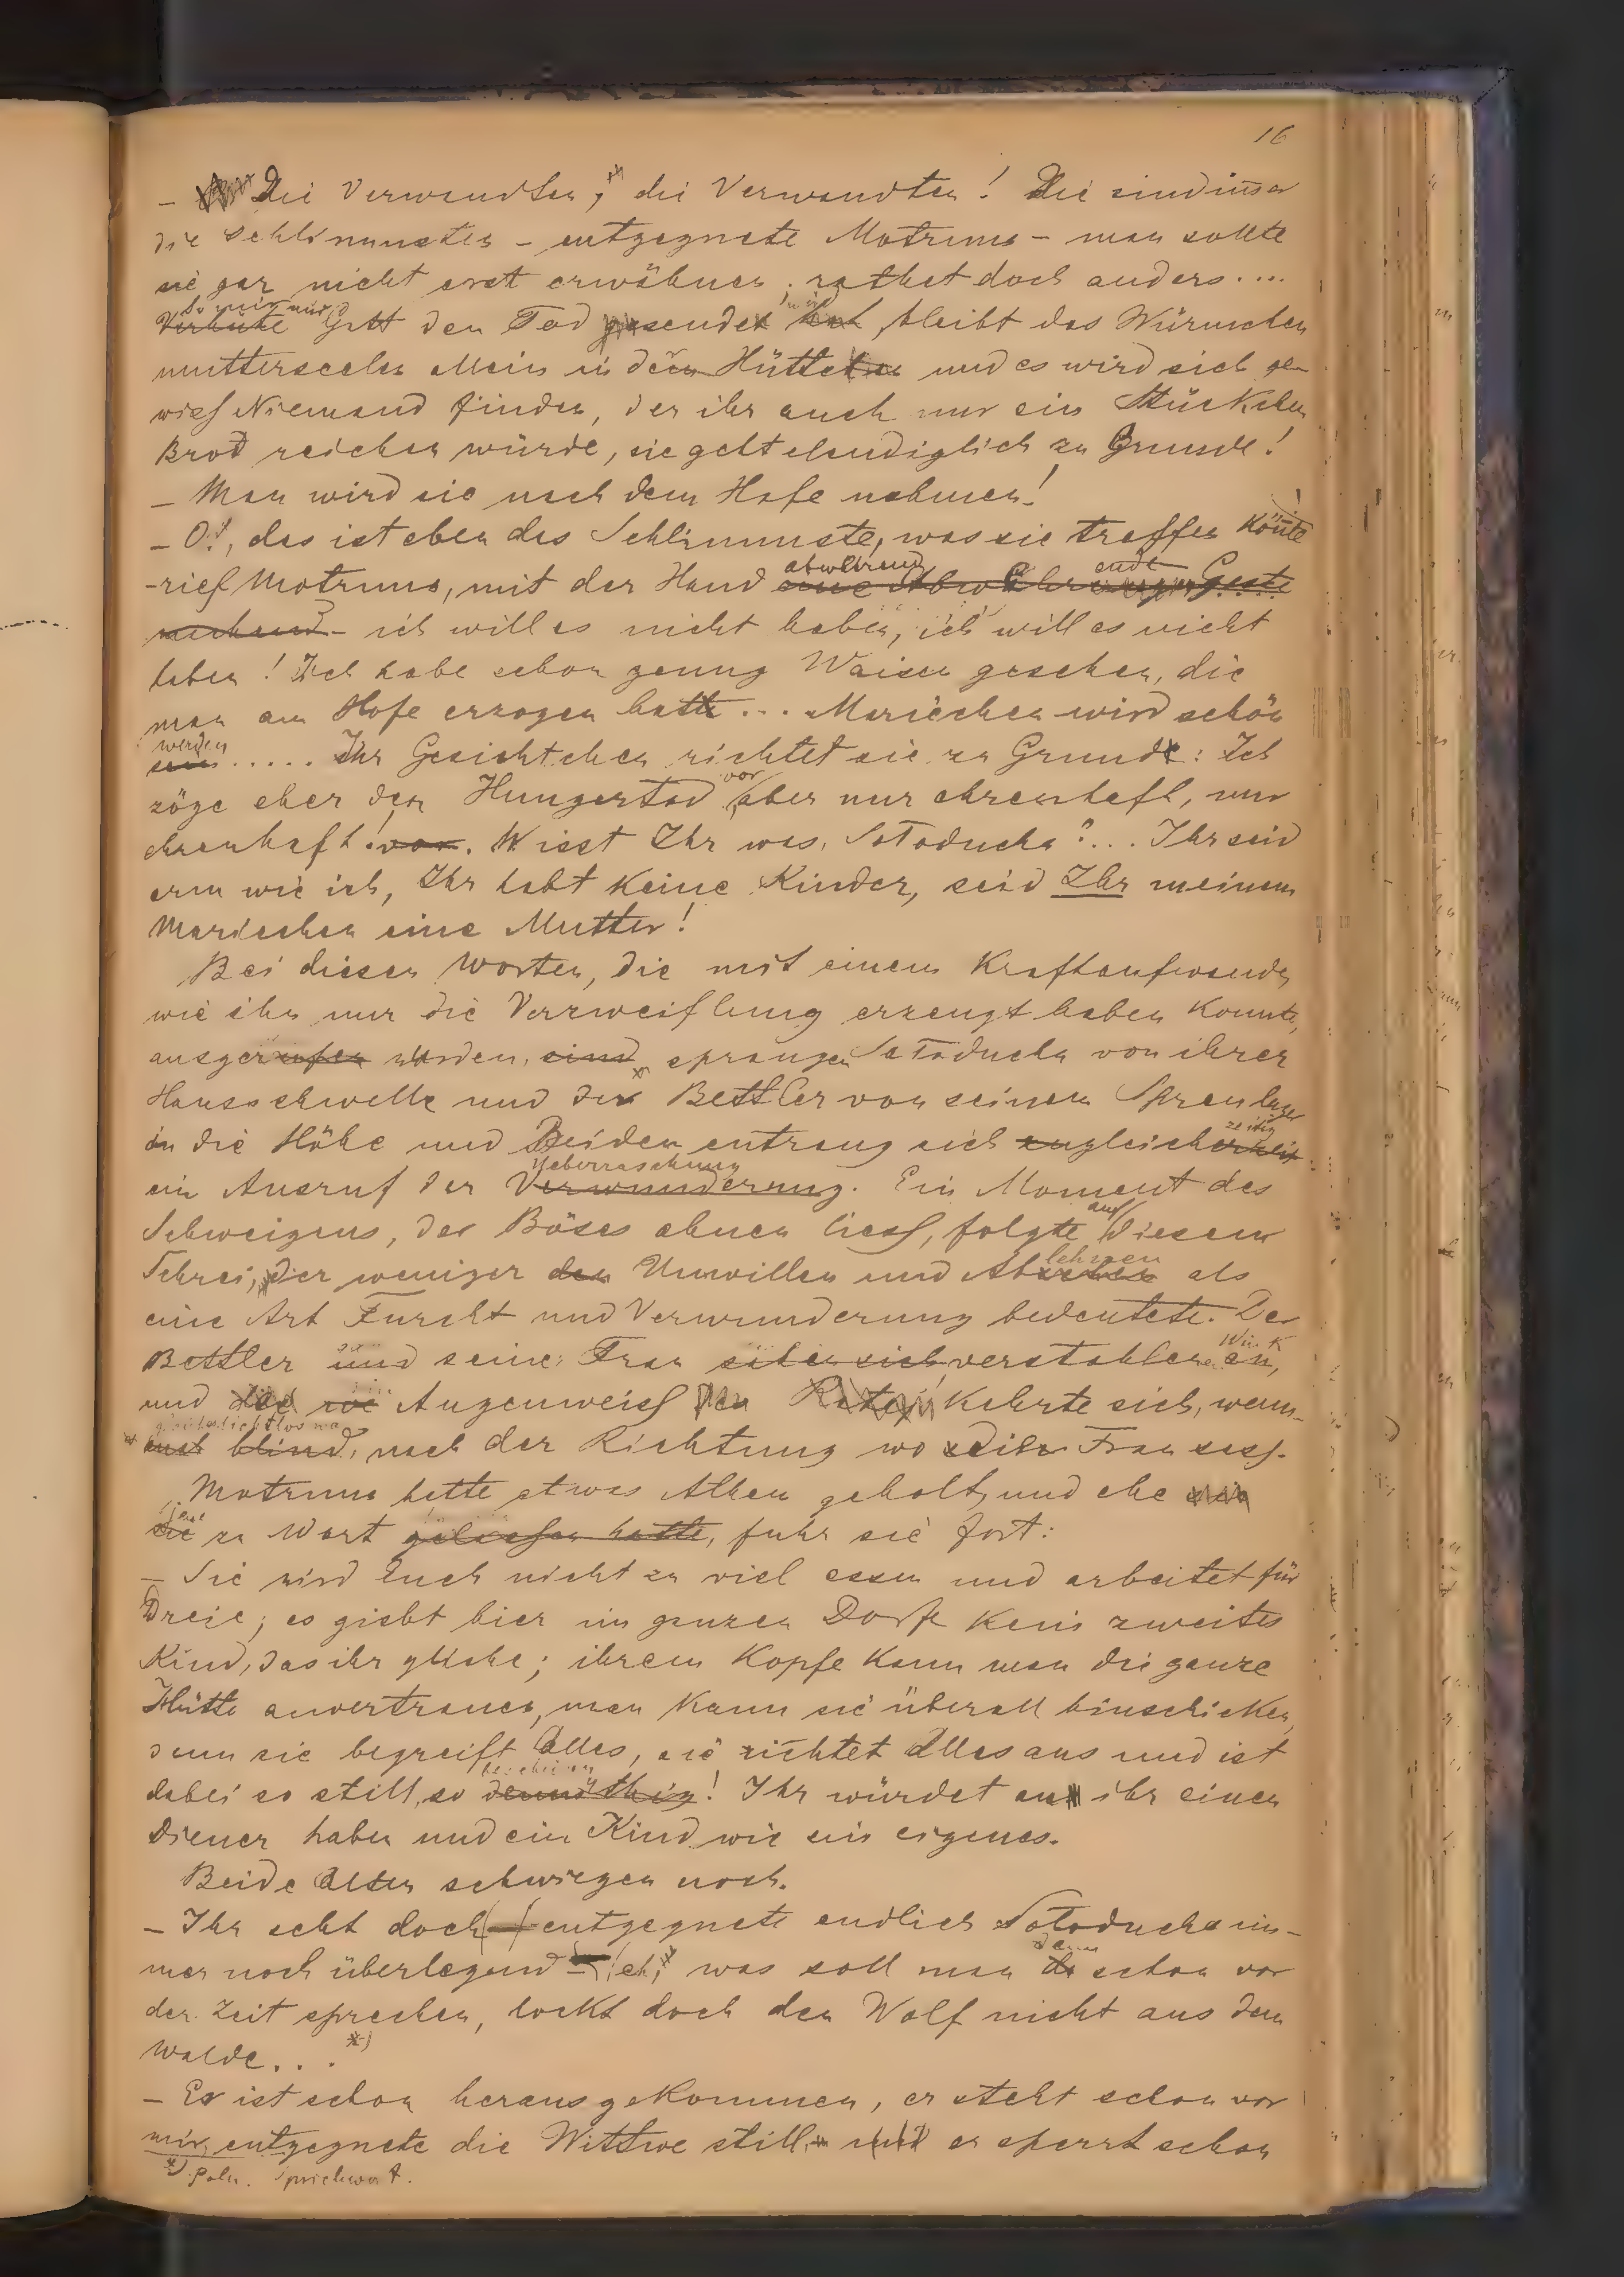 16
– Die Verwandten, die Verwandten! Die sind immer
die Schlimmsten – entgegnete Motruna – man sollte
sie gar nicht erst erwähnen, rathet doch anders....
Gott den Tod sendet, bleibt das Würmchen
mutterseelen allein in der Hütte und es wird sich ge-
wiss Niemand finden, der ihr auch nur ein Stückchen
Brod reichen würde, sie geht elendiglich zu Grunde!
– Man wird sie nach dem Hofe nehmen!
– O!, das ist eben das Schlimmste, was sie treffen könnte!
– rief Motruna, mit der Hand abwehrend
– ich will es nicht haben, ich will es nicht
haben! Ich habe schon genug Waisen gesehen, die
man am Hofe erzogen hatte... Mariechen wird schön
werden..... Ihr Gesichtchen richtet sie zu Grunde: Ich
zöge eher den Hungertod vor, aber nur ehrenhaft, nur
ehrenhaft! Wisst Ihr was, Soloducha?... Ihr seid
arm wie ich, Ihr habt keine Kinder, seid Ihr meinem
Mariechen eine Mutter!
Bei diesen Worten, die mit einem Kraftaufwande,
wie ihn nur die Verzweiflung erzeugt haben konnte,
ausgerufen wurden, sprangen Soloducha von ihrer
Hausschwelle und der Bettler von seinem Spreulager
in die Höhe und Beiden entrang sich gleichzeitig
ein Ausruf der Ueberraschung. Ein Moment des
Schweigens, der Böses ahnen liess, folgte auf diesem
Schrei, der weniger Unwillen und Ablehnen als
eine Art Furcht und Verwunderung bedeutete. Der
Bettler und seine Frau verstohlen
und Augenweiss kehrte sich, wenn-
gleich lichtlos, nach der Richtung wo seine Frau sass.
Motruna hatte etwas Athem geholt, und ehe
jene zu Wort, fuhr sie fort:
– Sie wird Euch nicht zu viel essen und arbeitet für
Dreie; es giebt hier im ganzen Dorfe kein zweites
Kind, das ihr gliche; ihrem Kopfe kann man die ganze
Hütte anvertrauen, man kann sie überall hinschicken,
denn sie begreift Alles, sie richtet Alles aus und ist
dabei so still, so bescheiden! Ihr würdet an ihr einen
Diener haben und ein Kind wie ein eigenes.
Beide Alten schwiegen noch.
– Ihr seht doch – entgegnete endlich Soloducha im-
mer noch überlegend – eh, was soll man denn schon vor
der Zeit sprechen, lockt doch den Wolf nicht aus dem
Walde... *)
– Er ist schon herausgekommen, er steht schon vor
mir, entgegnete die Wittwe still er sperrt schon
*) Poln. Sprichwort.